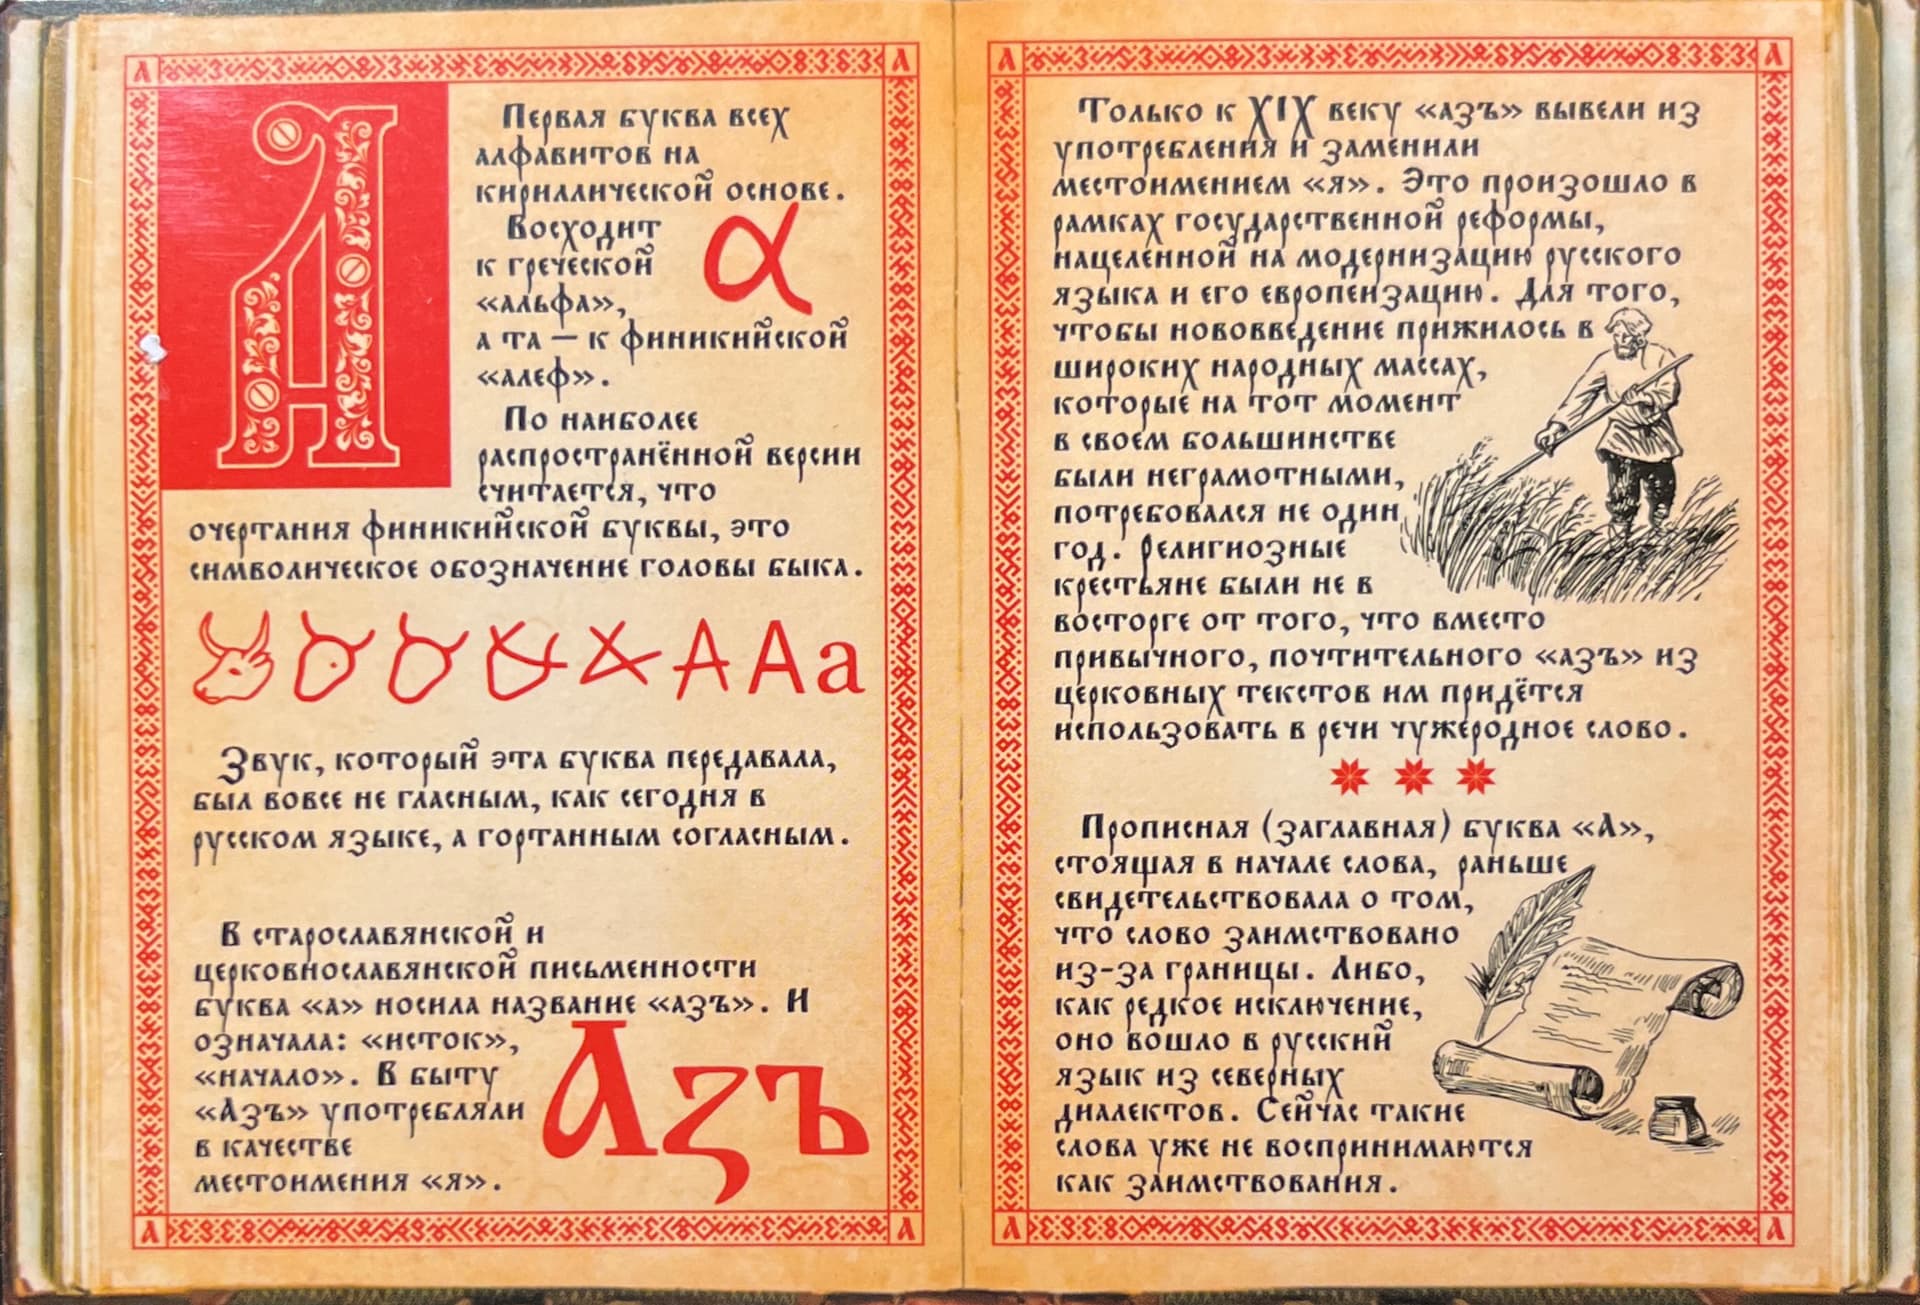 А
Первая буква всех
алфавитов на
кириллической основе.
Восходит
к греческой
«альфа»,
α
а та — к финикийской
«алеф».
По наиболее
распространённой версии
считается, что
очертания финикийской буквы, это
символическое обозначение головы быка.
А А а
Звук, который эта буква передавала,
был вовсе не гласным, как сегодня в
русском языке, а гортанным согласным.
В старославянской и
церковнославянской письменности
буква «а» носила название «азъ». И
означала: «исток»,
«начало». В быту
«Азъ» употребляли
в качестве
местоимения «я».
Азъ
Только к XIX веку «азъ» вывели из
употребления и заменили
местоимением «я». Это произошло в
рамках государственной реформы,
нацеленной на модернизацию русского
языка и его европеизацию. Для того,
чтобы нововведение прижилось в
широких народных массах,
которые на тот момент
в своем большинстве
были неграмотными,
потребовался не один
год. Религиозные
крестьяне были не в
восторге от того, что вместо
привычного, почтительного «азъ» из
церковных текстов им придётся
использовать в речи чужеродное слово.
Прописная (заглавная) буква «А»,
стоящая в начале слова, раньше
свидетельствовала о том,
что слово заимствовано
из-за границы. Либо,
как редкое исключение,
оно вошло в русский
язык из северных
диалектов. Сейчас такие
слова уже не воспринимаются
как заимствования.